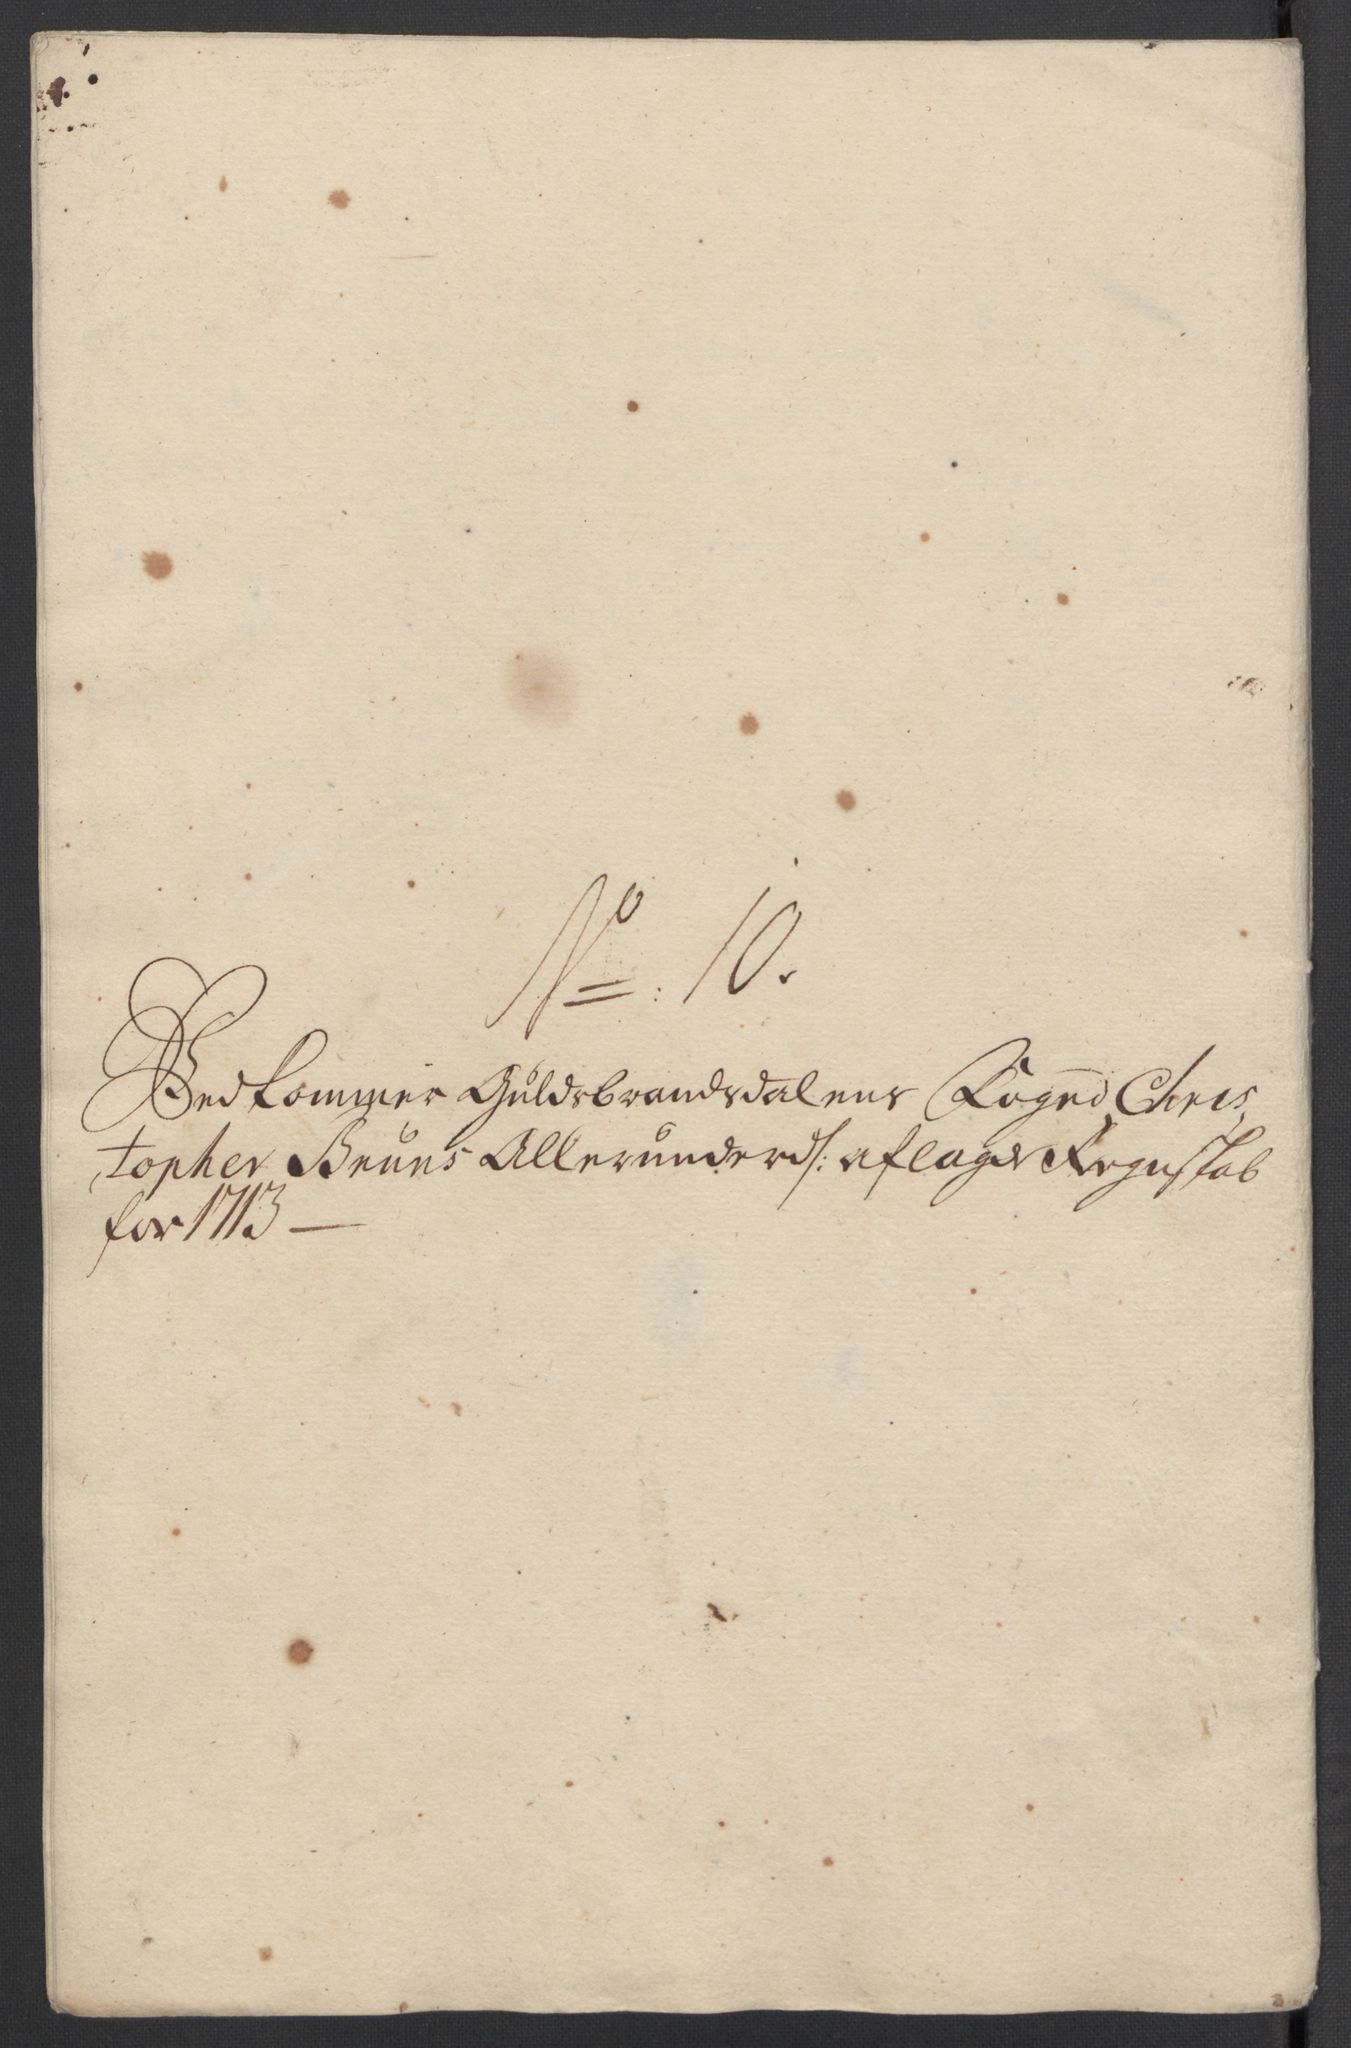 No: 10.
Vedkommer Guldsbrandsdalens Foged Chris,
topher Bruuns Allerunderd/: aflagde Regnskab
for 1713 —